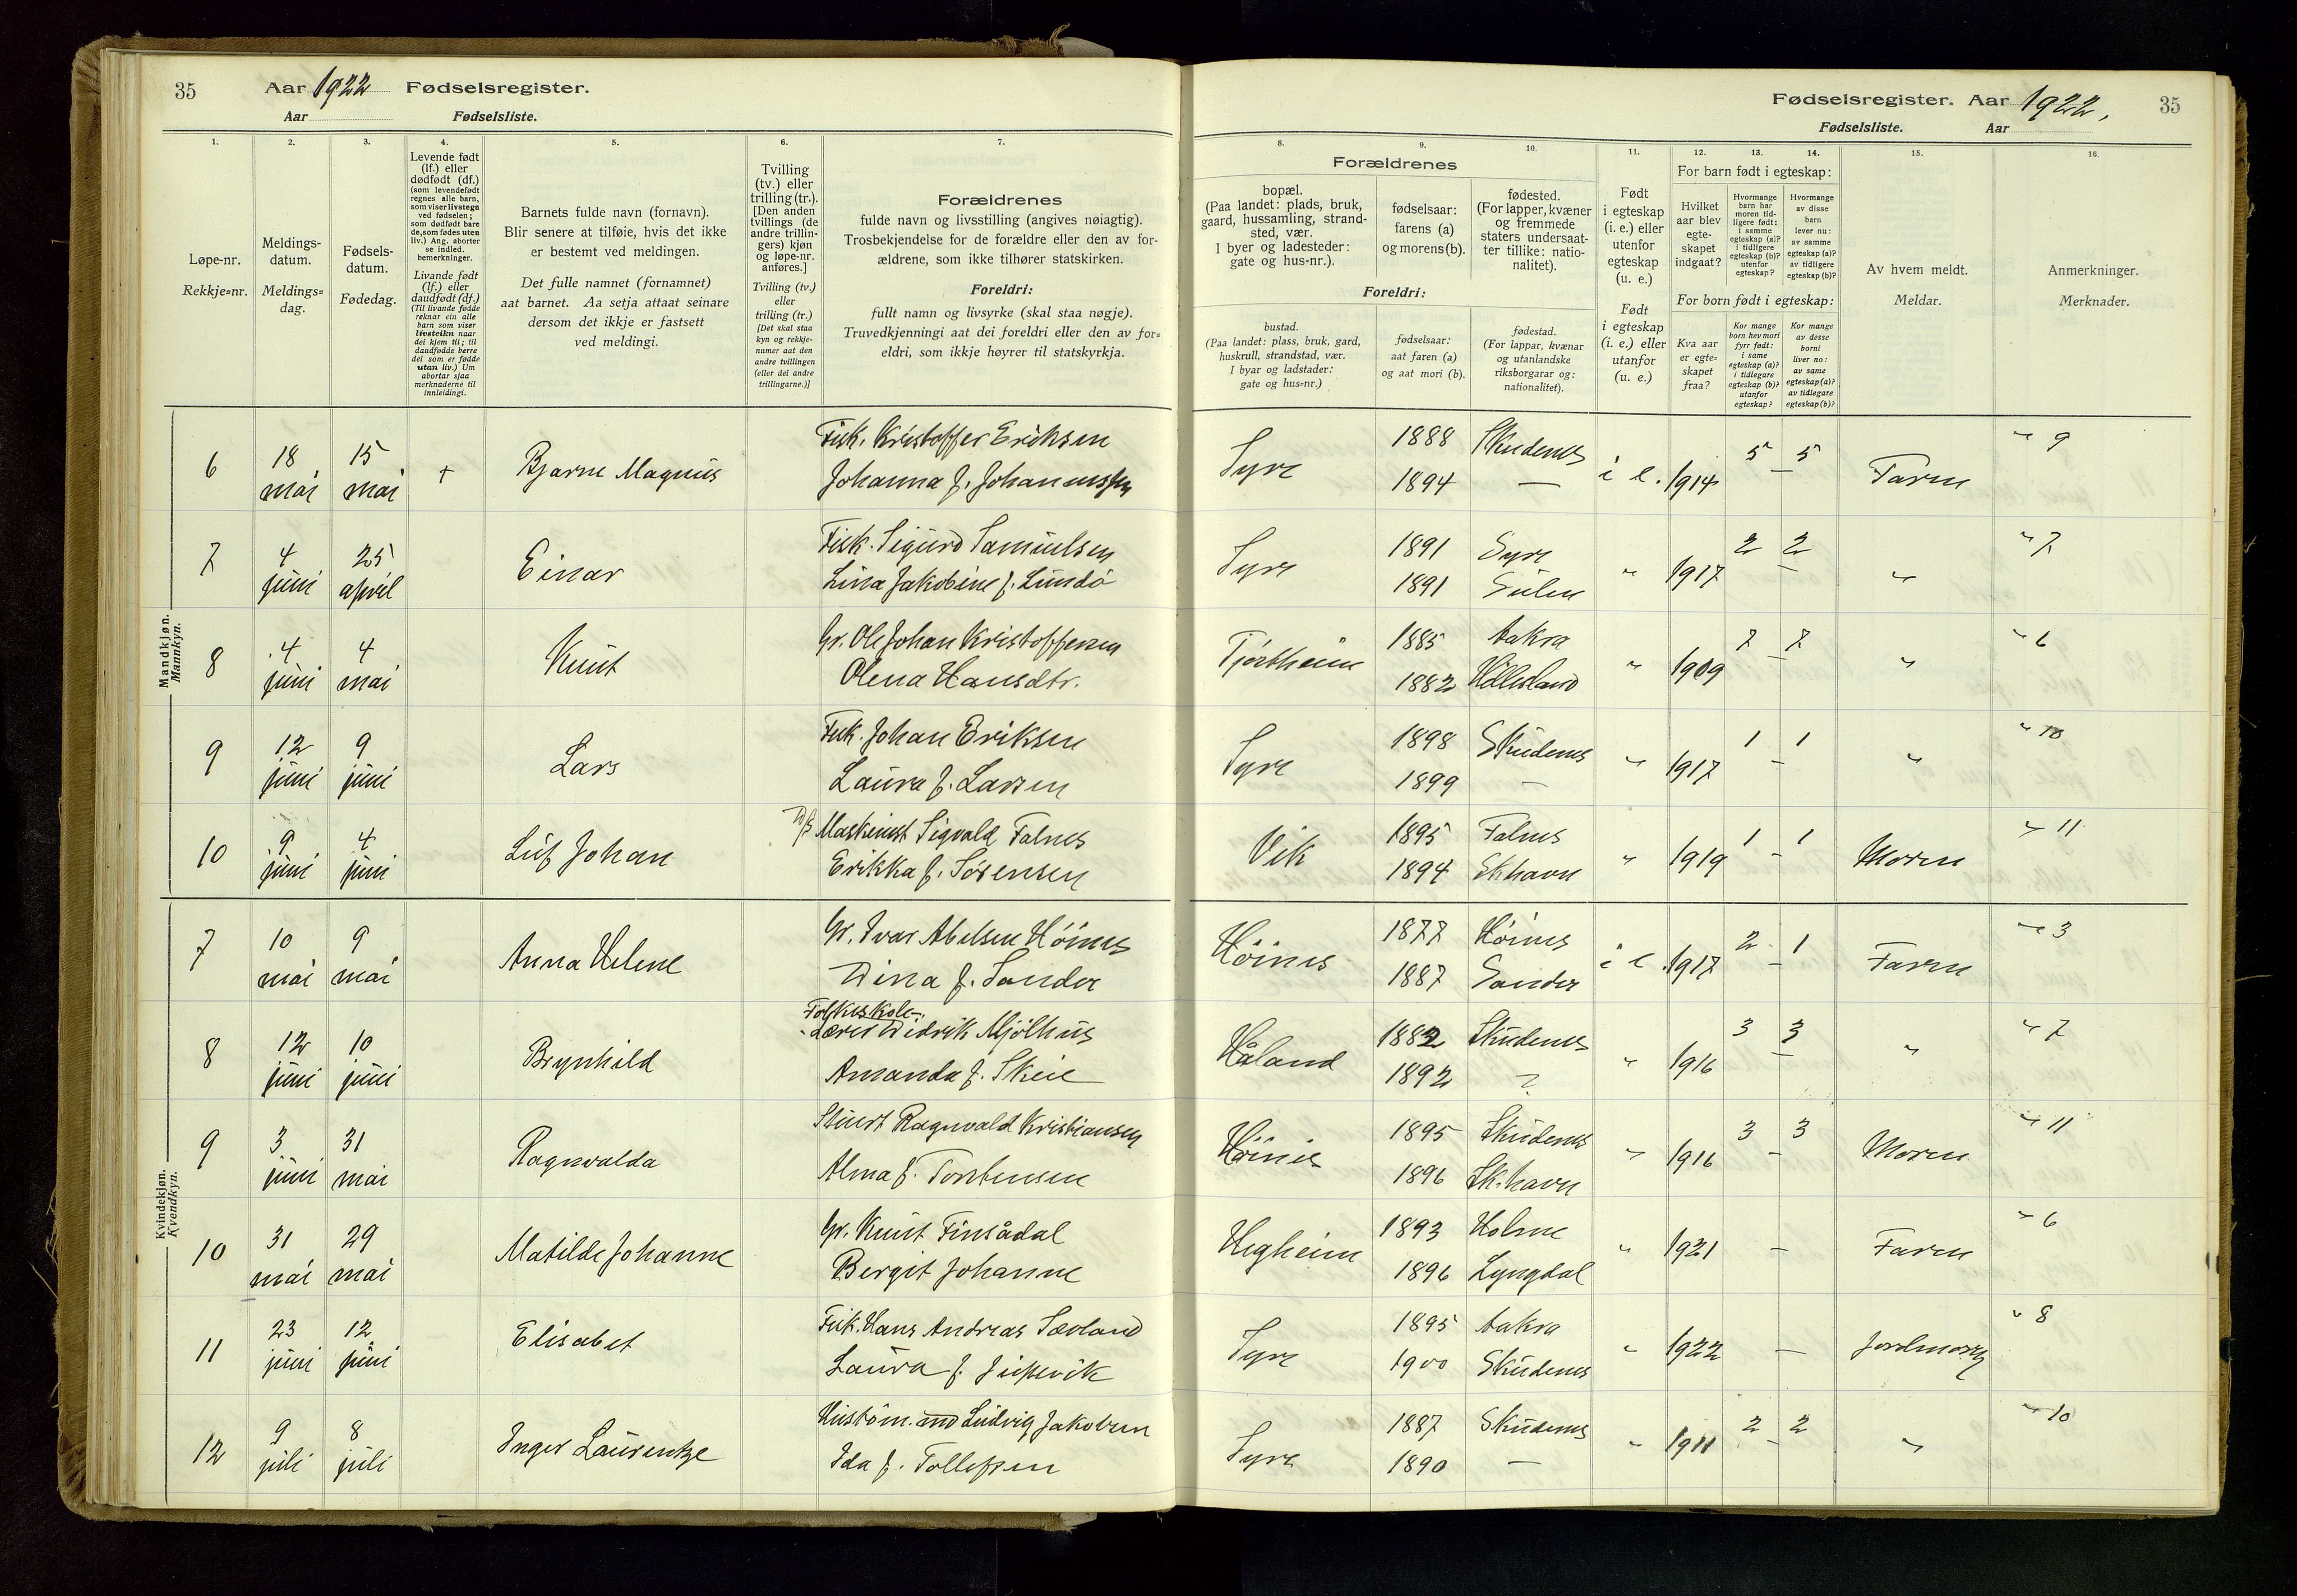 35
Aar 1922 Fødselsregister.
Aar Fødselsliste.
Fødselsregister. Aar 1922,
35
Fødselsliste. Aar
1. 2. 3. 4. 5. 6. 7. 8. 9. 10. 11. 12. 13. 14. 15. 16.
Løpe-nr.
Rekkje=nr.
Meldings-
datum.
Meldings=
dag.
Fødsels-
datum.
Fødedag.
Levende født
(lf.) eller
dødfødt (df.)
(som levendefødt
regnes alle barn,
som viser livstegn
ved fødselen;
som dødfødt bare
de, som fødes uten
liv.) Ang. aborter
se indled.
bemerkninger.
Livande født
(lf.) eller
daudfødt (df.)
(Til livande fødde
reknar ein alle
barn som viser
livsteikn naar
dei kjem til; til
daudfødde berre
dei som er fødde
utan liv.) Um
abortar sjaa
merknaderne til
innleidingi.
Barnets fulde navn (fornavn).
Blir senere at tilføie, hvis det ikke
er bestemt ved meldingen.
Det fulle namnet (fornamnet)
aat barnet. Aa setja attaat seinare
dersom det ikkje er fastsett
ved meldingi.
Tvilling
(tv.) eller
trilling (tr.).
[Den anden
tvillings (de
andre trillin-
gers) kjøn
og løpe-nr.
anføres.]
Tvilling (tv.)
eller
trilling (tr.)
[Det skal staa
kyn og rekkje-
numer aat den
andre tvillingen
(eller dei andre
trillingarne.)]
Forældrenes
fulde navn og livsstilling (angives nøiagtig).
Trosbekjendelse for de forældre eller den av for-
ældrene, som ikke tilhører statskirken.
Foreldri:
fullt namn og livsyrke (skal staa nøgje).
Truvedkjenningi aat dei foreldri eller den av for=
eldri, som ikkje høyrer til statskyrkja.
Forældrenes
bopæl.
(Paa landet: plads, bruk,
gaard, hussamling, strand-
sted, vær.
I byer og ladesteder:
gate og hus-nr.).
fødselsaar:
farens (a)
og morens (b).
fødested.
(For lapper, kvæner
og fremmede
staters undersaat-
ter tillike: natio-
nalitet).
Foreldri:
bustad.
(Paa landet: plass, bruk, gard,
huskrull, strandstad, vær.
I byar og ladstader:
gate og hus=nr.)
fødselsaar:
aat faren (a)
og aat mori (b).
fødestad.
(For lappar, kvænar
og utanlandske
riksborgarar og:
nationalitet).
Født
i egteskap
(i. e.) eller
utenfor
egteskap
(u. e.)
Født
i egteskap
(i. e.) eller
utanfor
(u. e.)
For barn født i egteskap:
Hvilket
aar blev
egte-
skapet
indgaat?
Hvormange
barn har
moren tid-
ligere født:
i samme
egteskap (a)?
i tidligere
egteskap (b)?
utenfor
egteskap?
Hvormange
av disse
barn
lever nu:
av samme
egteskap (a)?
av tidligere
egteskap (b)?
For born født i egteskap:
Kva aar
er egte=
skapet
fraa?
Kor mange
born hev mori
fyrr født:
i same
egteskap (a)?
i tidlegare
egteskap (b)?
utanfor
egteskap?
Kor mange
av desse
borni
liver no:
av same
egteskap (a)?
av tidlegare
egteskap (b)?
Av hvem meldt.
Meldar.
Anmerkninger.
Merknader.
Mandkjøn.
Mannkyn.
6 18 mai 15 mai + Bjarne Magnus Fisk. Kristoffer Eriksen Syre 1888 Skudenes i e. 1914 5 – 5 Faren " 9
Johanna f. Johannessen 1894 —
7 4 juni 25 april Einar Fisk. Sigurd Samuelsen Syre 1891 Syre " 1917 2 – 2 " " 7
Lina Jakobine f. Lundö 1891 Sulen
8 4 juni 4 mai Knut Gr. Ole Johan Kristoffersen Tjøstheim 1885 Aakra " 1909 7 – 7 " " 6
Olena Hansdtr. 1882
9 12 juni 9 juni Lars Fisk. Johan Eriksen Syre 1898 Skudenes " 1917 1 – 1 " " 10
Laura f. Larsen 1899 —
10 9 juni 4 juni Leif Johan D/S Maskinist Sigvald Falnes Vik 1895 Falnes " 1919 1 – 1 Moren " 11
Erikka f. Sørensen 1894 Skhavn
Kvindekjøn.
Kvendkyn.
7 10 mai 9 mai Anna Helene Gr. Ivar Abelsen Höines Höines 1877 Höines i e. 1917 2 – 1 Faren " 3
Dina f. Sander 1887 Sander
8 12 juni 10 juni Brynhild Folkeskole-
Lærer Didrik Mjölhus Håland 1882 Skudenes " 1916 3 – 3 " " 7
Amanda f. Skeie 1892
9 3 juni 31 mai Ragnvalda Stuert Ragnvald Kristiansen Höines 1895 Skudenes " 1916 3 – 3 Moren " 11
Alma f. Torstensen 1896 Sk.havn
10 31 mai 29 mai Matilde Johanne Gr. Knut Finsådal Hegheim 1893 Holme " 1921 – Faren " 6
Bergit Johanne 1896 Lyngdal
11 23 juni 12 juni Elisabet Fisk. Hans Andreas Sævland Syre 1895 Aakra " 1922 — Jordmoren " 8
Laura f. 1900 Skudenes
12 9 juli 8 juli Inger Laurentze Ludvig Jakobsen Syre 1887 Skudenes " 1911 2 – 2 " " 10
Ida f. Tollefsen 1890 —